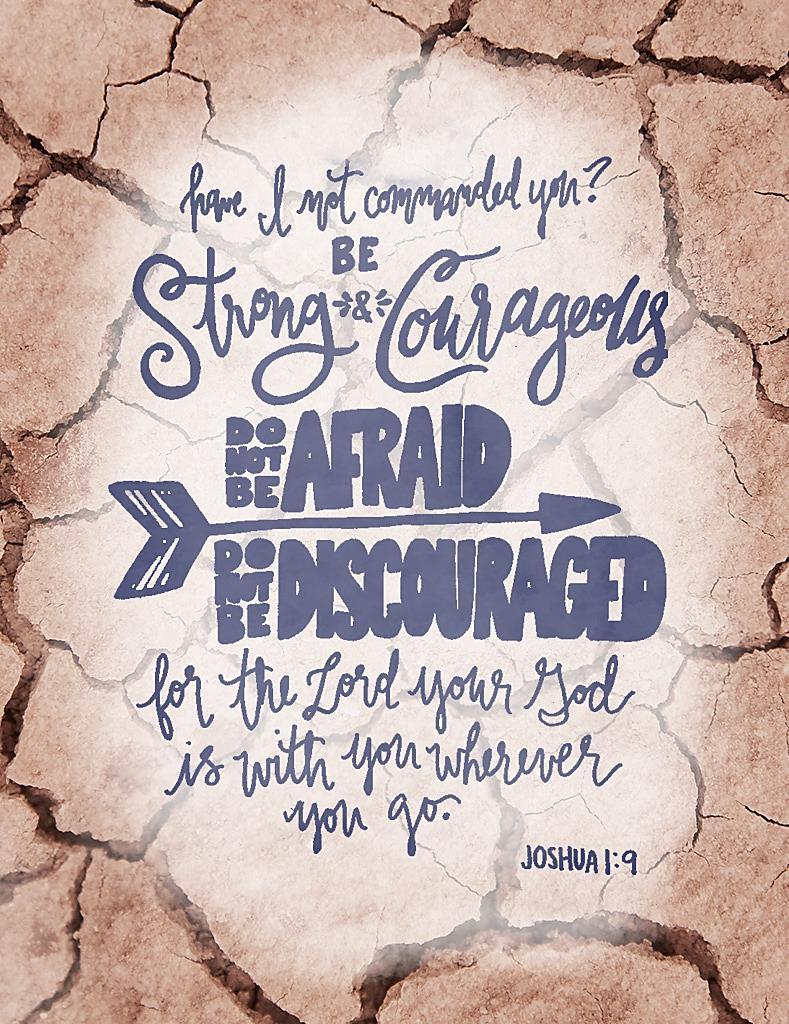 have I not commanded you?
BE
Strong & Courageous
DO NOT BE AFRAID
DO NOT BE DISCOURAGED
for the Lord your God
is with you wherever
you go.
JOSHUA 1:9